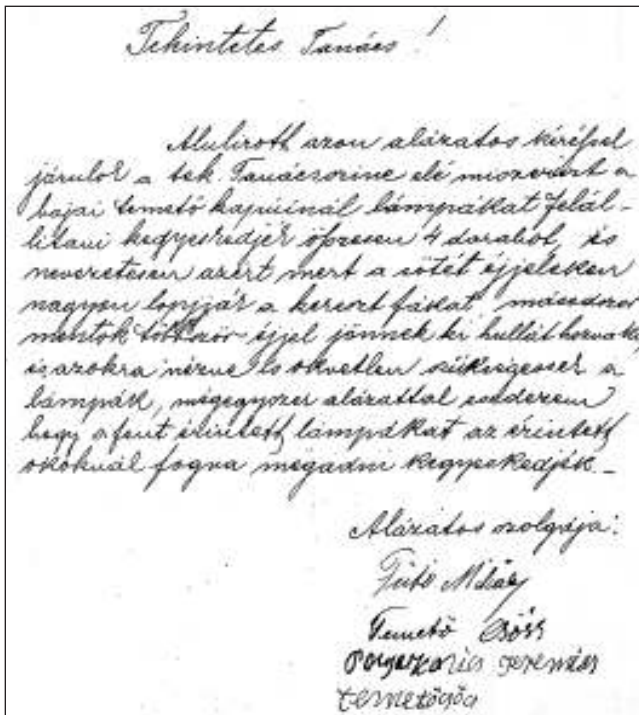 Tekintetes Tanács!
Alulirott azon alázatos kéréssel
járulok a tek. Tanács elé miszerint a
bajai temető kapuinál lámpákat felál-
litani kegyeskedjék öszesen 4 darabot, és
nevezetesen azért mert a sötét éjjeleken
nagyon lopják a kereszt fákat, másodszor
mentők többször éjjel jönnek ki hullát hozva
és azokra nézve is okvetlen szükségesek a
lámpák, mégegyszer alázattal esedezem
hogy a fent érintett lámpákat az érintett
okoknál fogva megadni kegyeskedjék.–
Alázatos szolgája:
Mihály
Temető Csősz
temetőcsősz